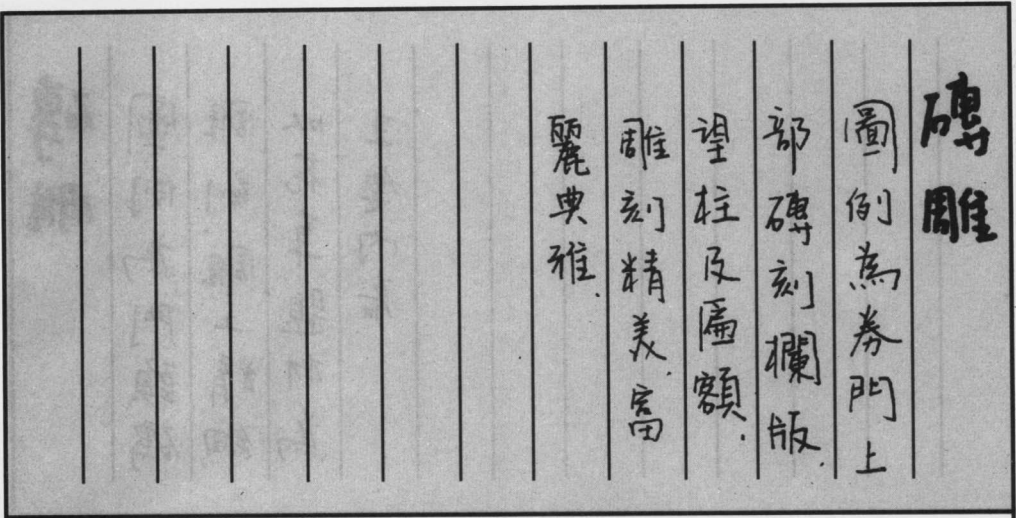 磚雕
圖例為券門上
部磚刻欄版.
望柱及匾額.
雕刻精美.富
麗典雅.